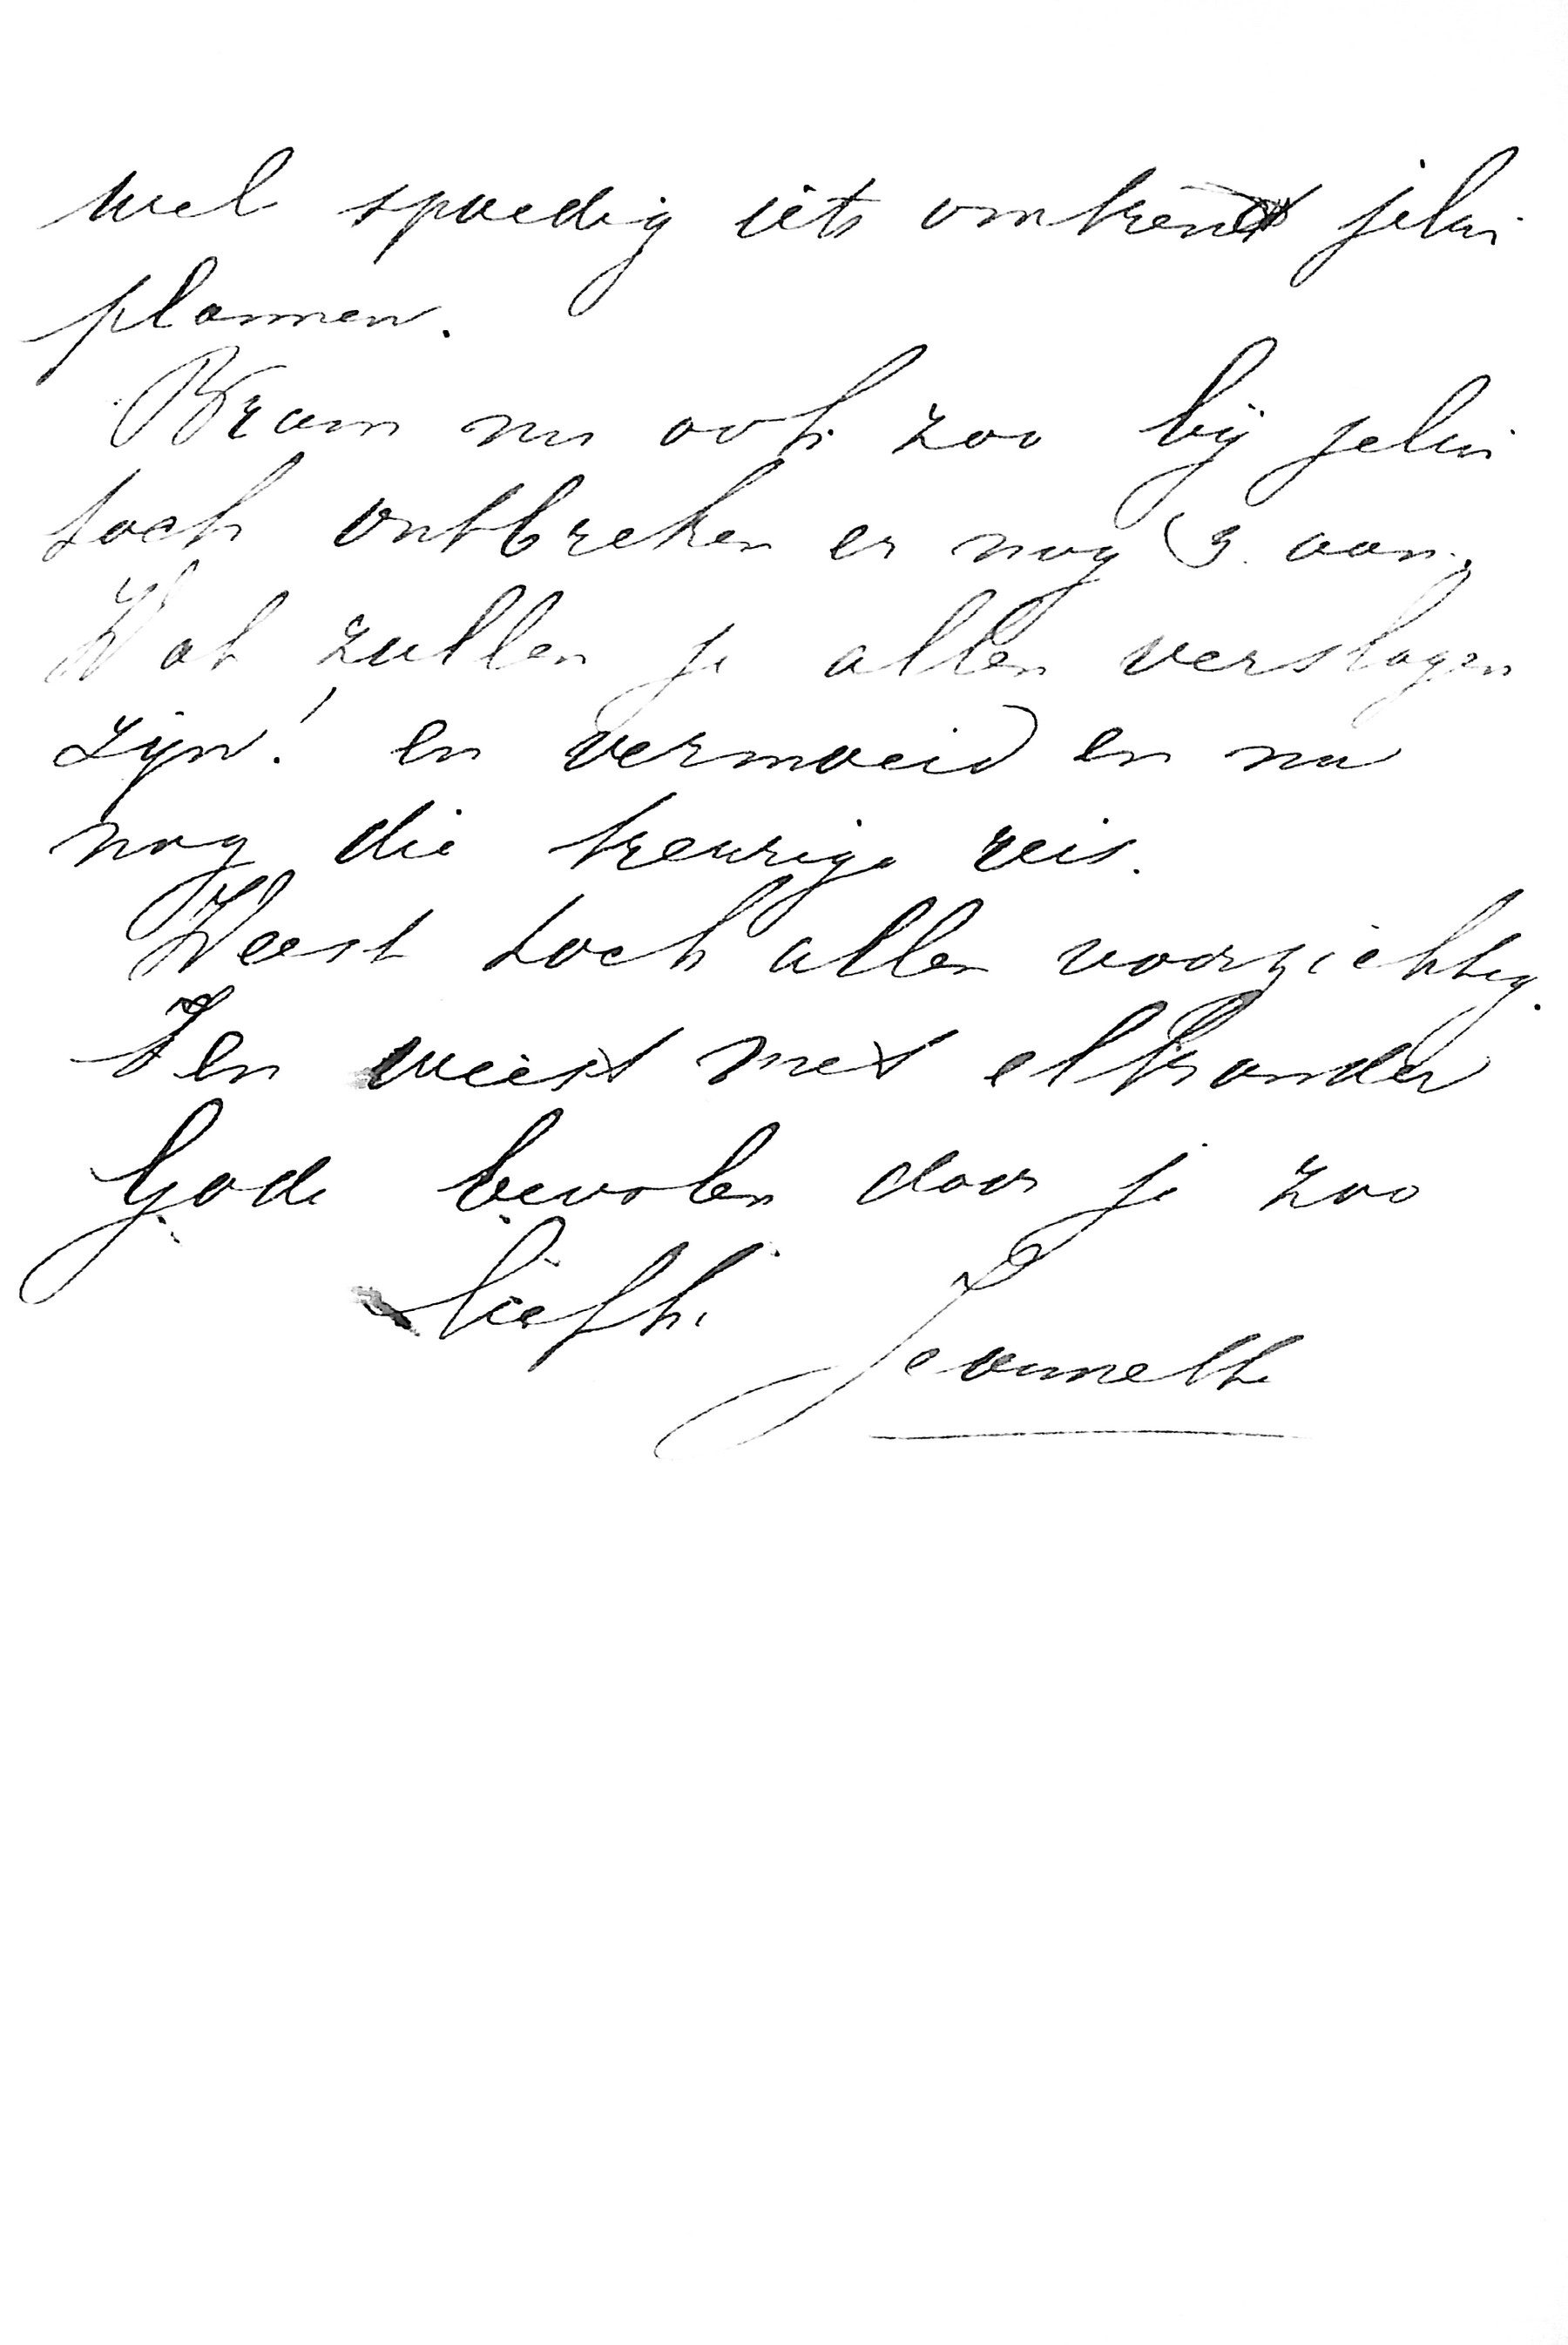 wel spoedig iets omtrent jelui
plannen.
Bram nu ook zoo bij jelui
toch ontbreken er nog 3. aan.
Wat zullen je allen verslagen
zijn! en vermoeid en nu
nog die treurige reis.
Weest toch allen voorzichtig.
en weest met elkander
Gode bevolen door je zoo
liefh.
Jeannette